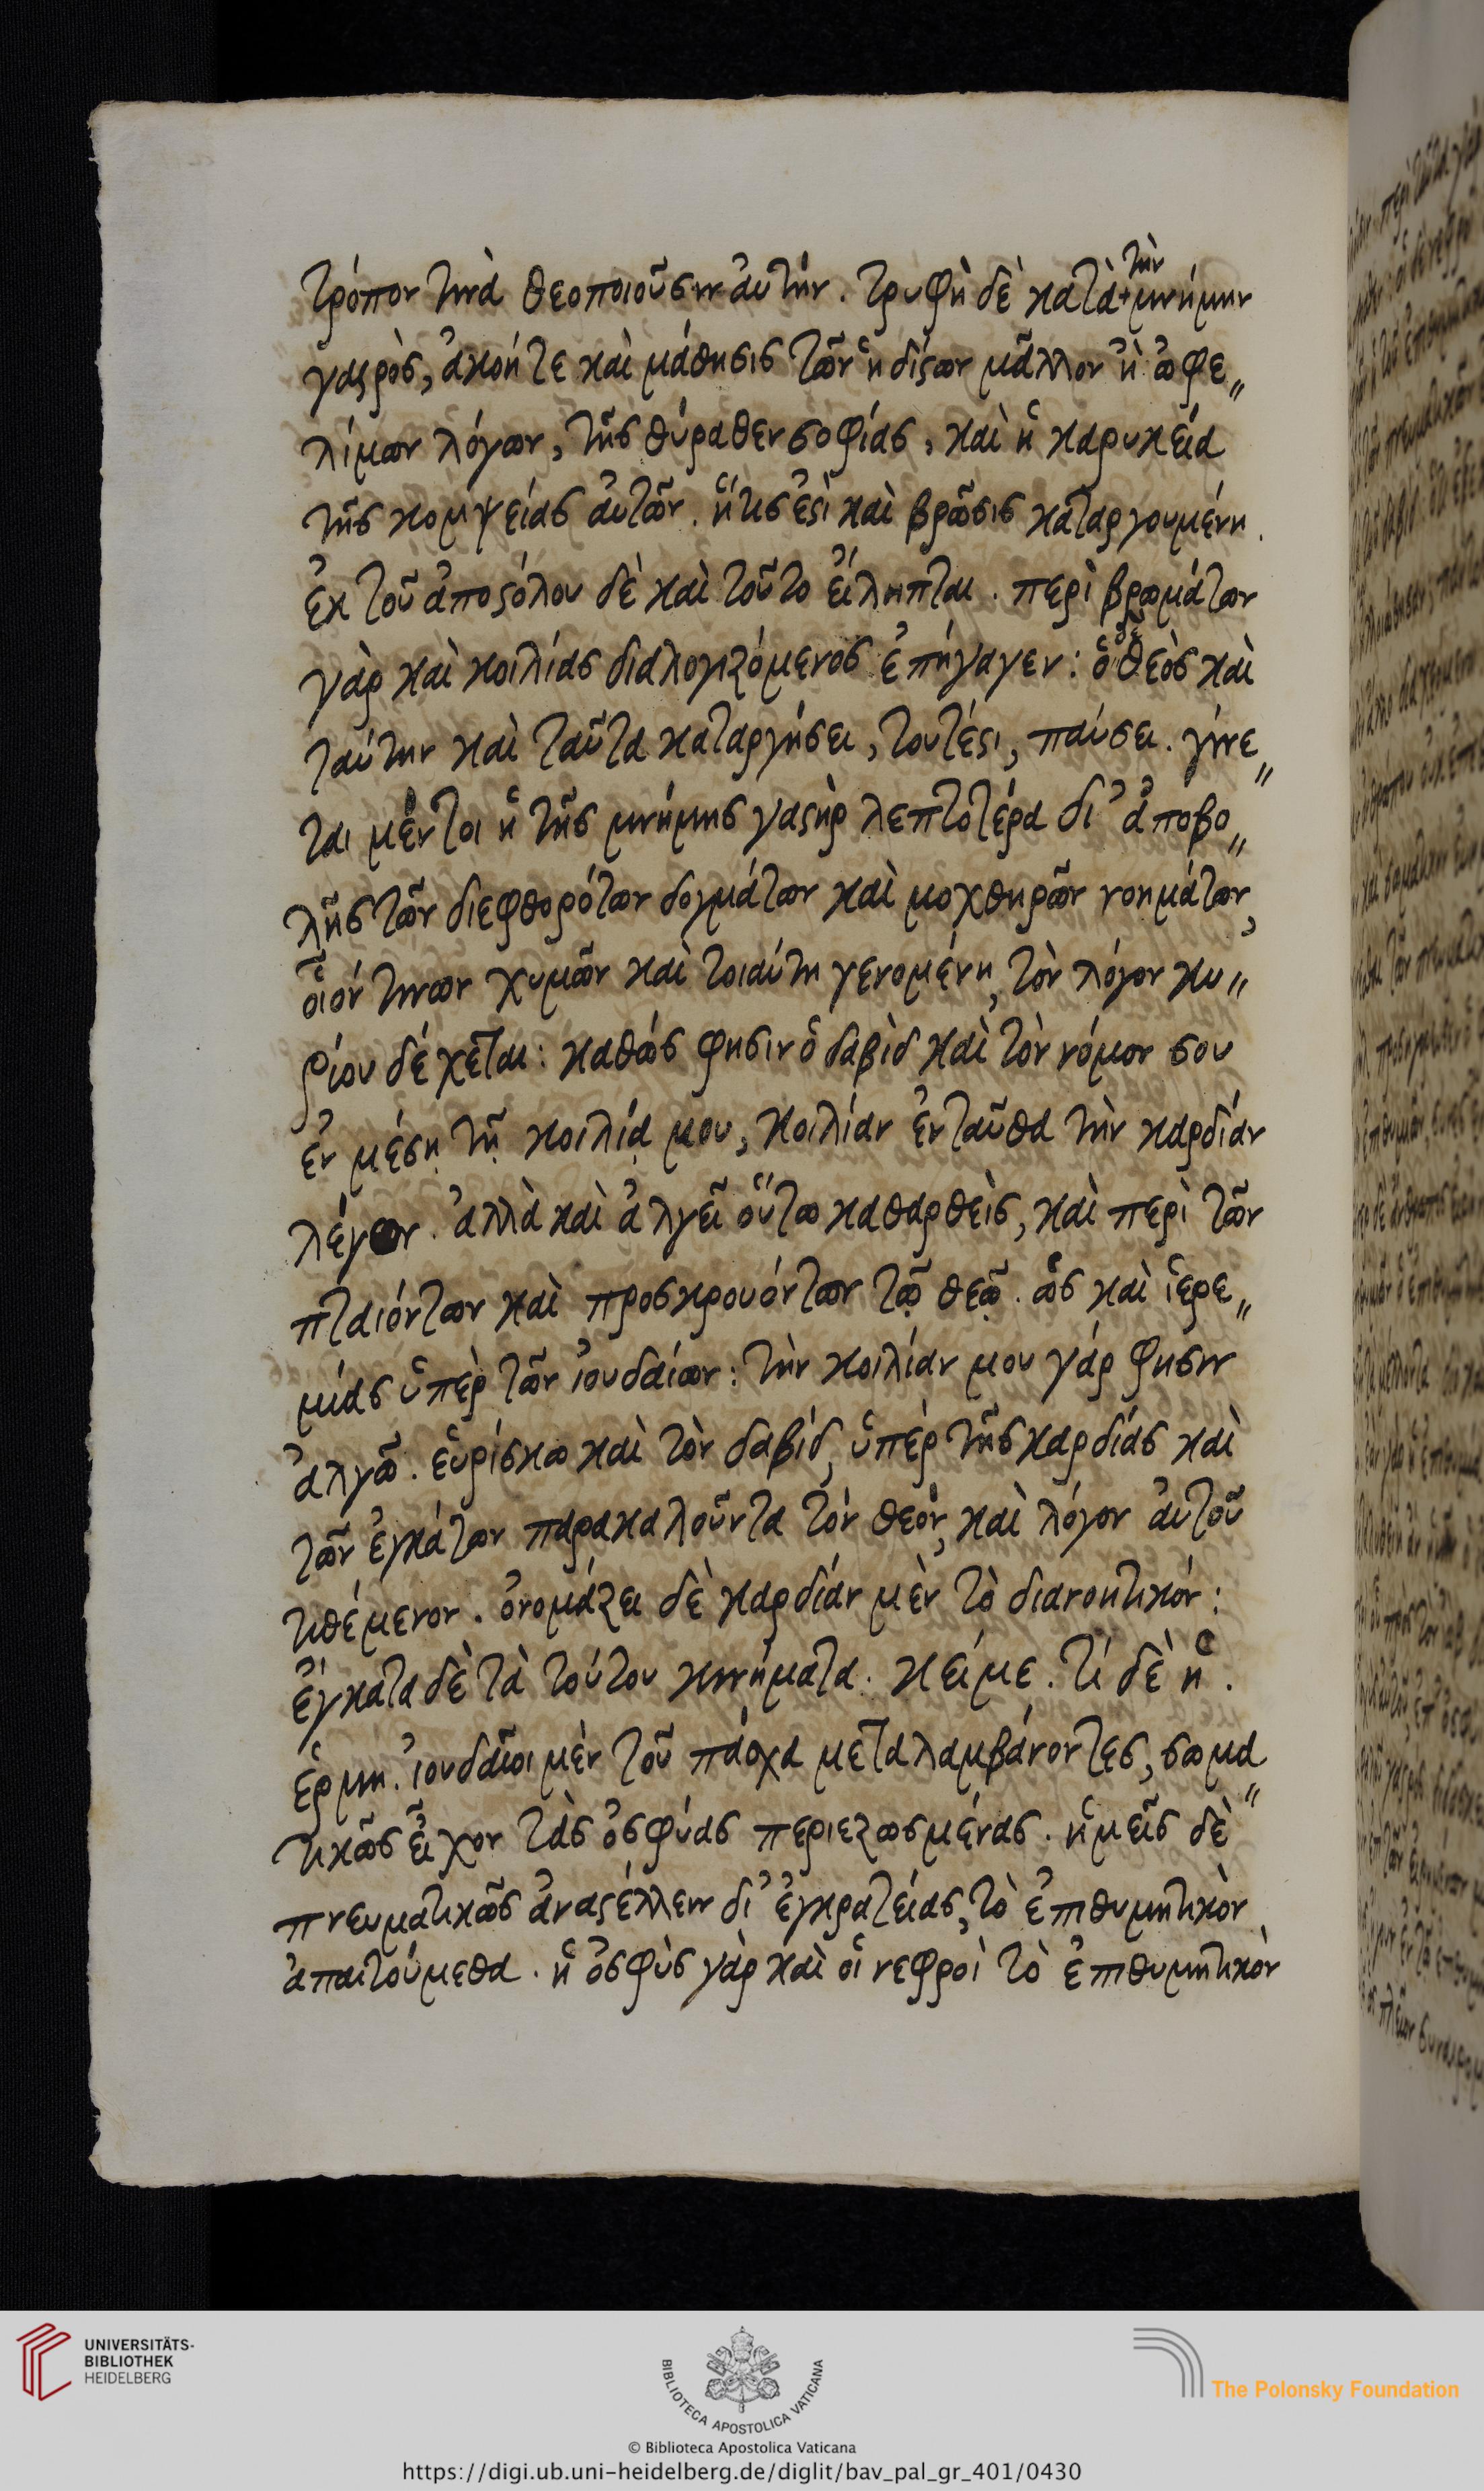 τρόπον τινὰ θεοποιοῦσιν ἀυτήν. τρυφὴ δὲ κατὰ + τὴν μνήμην
γαστρὸς, ἀκοή τε καὶ μάθησις τῶν ἡδίστων μᾶλλον ἢ ὠφε〃
λίμων λόγων, τῆς θύραθεν σοφίας, καὶ ἡ καρυκεία
τῆς κομψείας ἀυτῶν. ἥτις ἐστὶ καὶ βρῶσις καταργουμένη.
ἐκ τοῦ ἀποστόλου δὲ καὶ τοῦτο ἐίληπται. περὶ βρωμάτων
γὰρ καὶ κοιλίας διαλογιζόμενος ἐπήγαγεν: ὁ δὲ θεὸς καὶ
ταύτην καὶ ταῦτα καταργήσει, τουτέστι, παύσει. γίνε〃
ται μέντοι ἡ τῆς μνήμης γαστὴρ λεπτοτέρα δι' ἀποβο〃
λῆς τῶν διεφθορότων δογμάτων καὶ μοχθηρῶν νοημάτων,
οἷόν τινων χυμῶν καὶ τοιαύτη γενομένη, τὸν λόγον κυ〃
ρίου δέχεται: καθώς φησιν ὁ δαβὶδ καὶ τὸν νόμον σου
ἐν μέσῃ τῇ κοιλίᾳ μου, κοιλίαν ἐνταῦθα τὴν καρδίαν
λέγων. ἀλλὰ καὶ ἀλγεῖ οὕτω καθαρθεὶς, καὶ περὶ τῶν
πταιόντων καὶ προσκρουόντων τῷ θεῷ. ὡς καὶ ἱερε〃
μίας ὑπὲρ τῶν ἰουδαίων: τὴν κοιλίαν μου γάρ φησιν
ἀλγῶ. ἑυρίσκω καὶ τὸν δαβίδ, ὑπὲρ τῆς καρδίας καὶ
τῶν ἐγκάτων παρακαλοῦντα τὸν θεόν, καὶ λόγον ἀυτοῦ
τιθέμενον. ὀνομάζει δὲ καρδίαν μὲν τὸ διανοητικόν:
ἔγκατα δὲ τὰ τούτου κινήματα. κείμε. τί δὲ ἡ.
ἑρμη. ἰουδαῖοι μὲν τοῦ πάσχα μεταλαμβάνοντες, σωμα〃
τικῶς εἶχον τὰς ὀσφύας περιεζωσμένας. ἡμεῖς δὲ
πνευματικῶς ἀναστέλλειν δι' ἐγκρατείας, τὸ ἐπιθυμητικὸν
ἀπαιτούμεθα. ἡ ὀσφὺς γὰρ καὶ οἱ νεφροὶ τὸ ἐπιθυμητικὸν
UNIVERSITÄTS-
BIBLIOTHEK
HEIDELBERG
BIBLIOTECA APOSTOLICA VATICANA
The Polonsky Foundation
© Biblioteca Apostolica Vaticana
https://digi.ub.uni-heidelberg.de/diglit/bav_pal_gr_401/0430